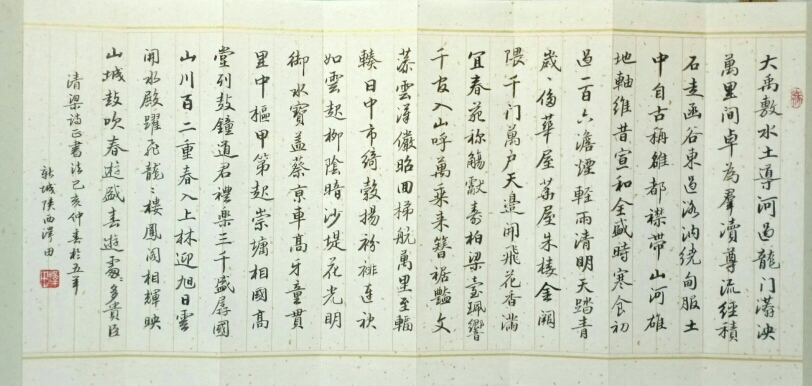 大禹敷水土導河過龍门莽泱
萬里间卓為羣瀆尊流經積
石走函谷東過洛汭绕甸服土
中自古稱雒都襟帶山河雄
地軸維昔宣和全盛時寒食初
過一百六澹煙輕雨清明天踏青
歲〻侈華屋茅屋朱棱金澜
隈千门萬户天邉開飛花香满
宜春苑称觴獻壽柏梁臺珮響
千官入山呼萬乘来簪裾豔文
慕雲漢儀昭回梯航萬里至輻
輳日中市綺縠揚紛裶連袂
如雲起柳陰暗沙堤花光明
御水寳盖蔡京車髙牙童貫
里中樞甲第起崇墉相國髙
堂列鼓鐘通名禮樂三千盛孱國
山川百二重春入上林迎旭日雲
開水殿躍飛龍〻樓鳳阁相輝映
山城鼓吹春遊盛春遊處〻多貴臣
清梁诗正書法己亥仲春於五羊
新城陕西澤田